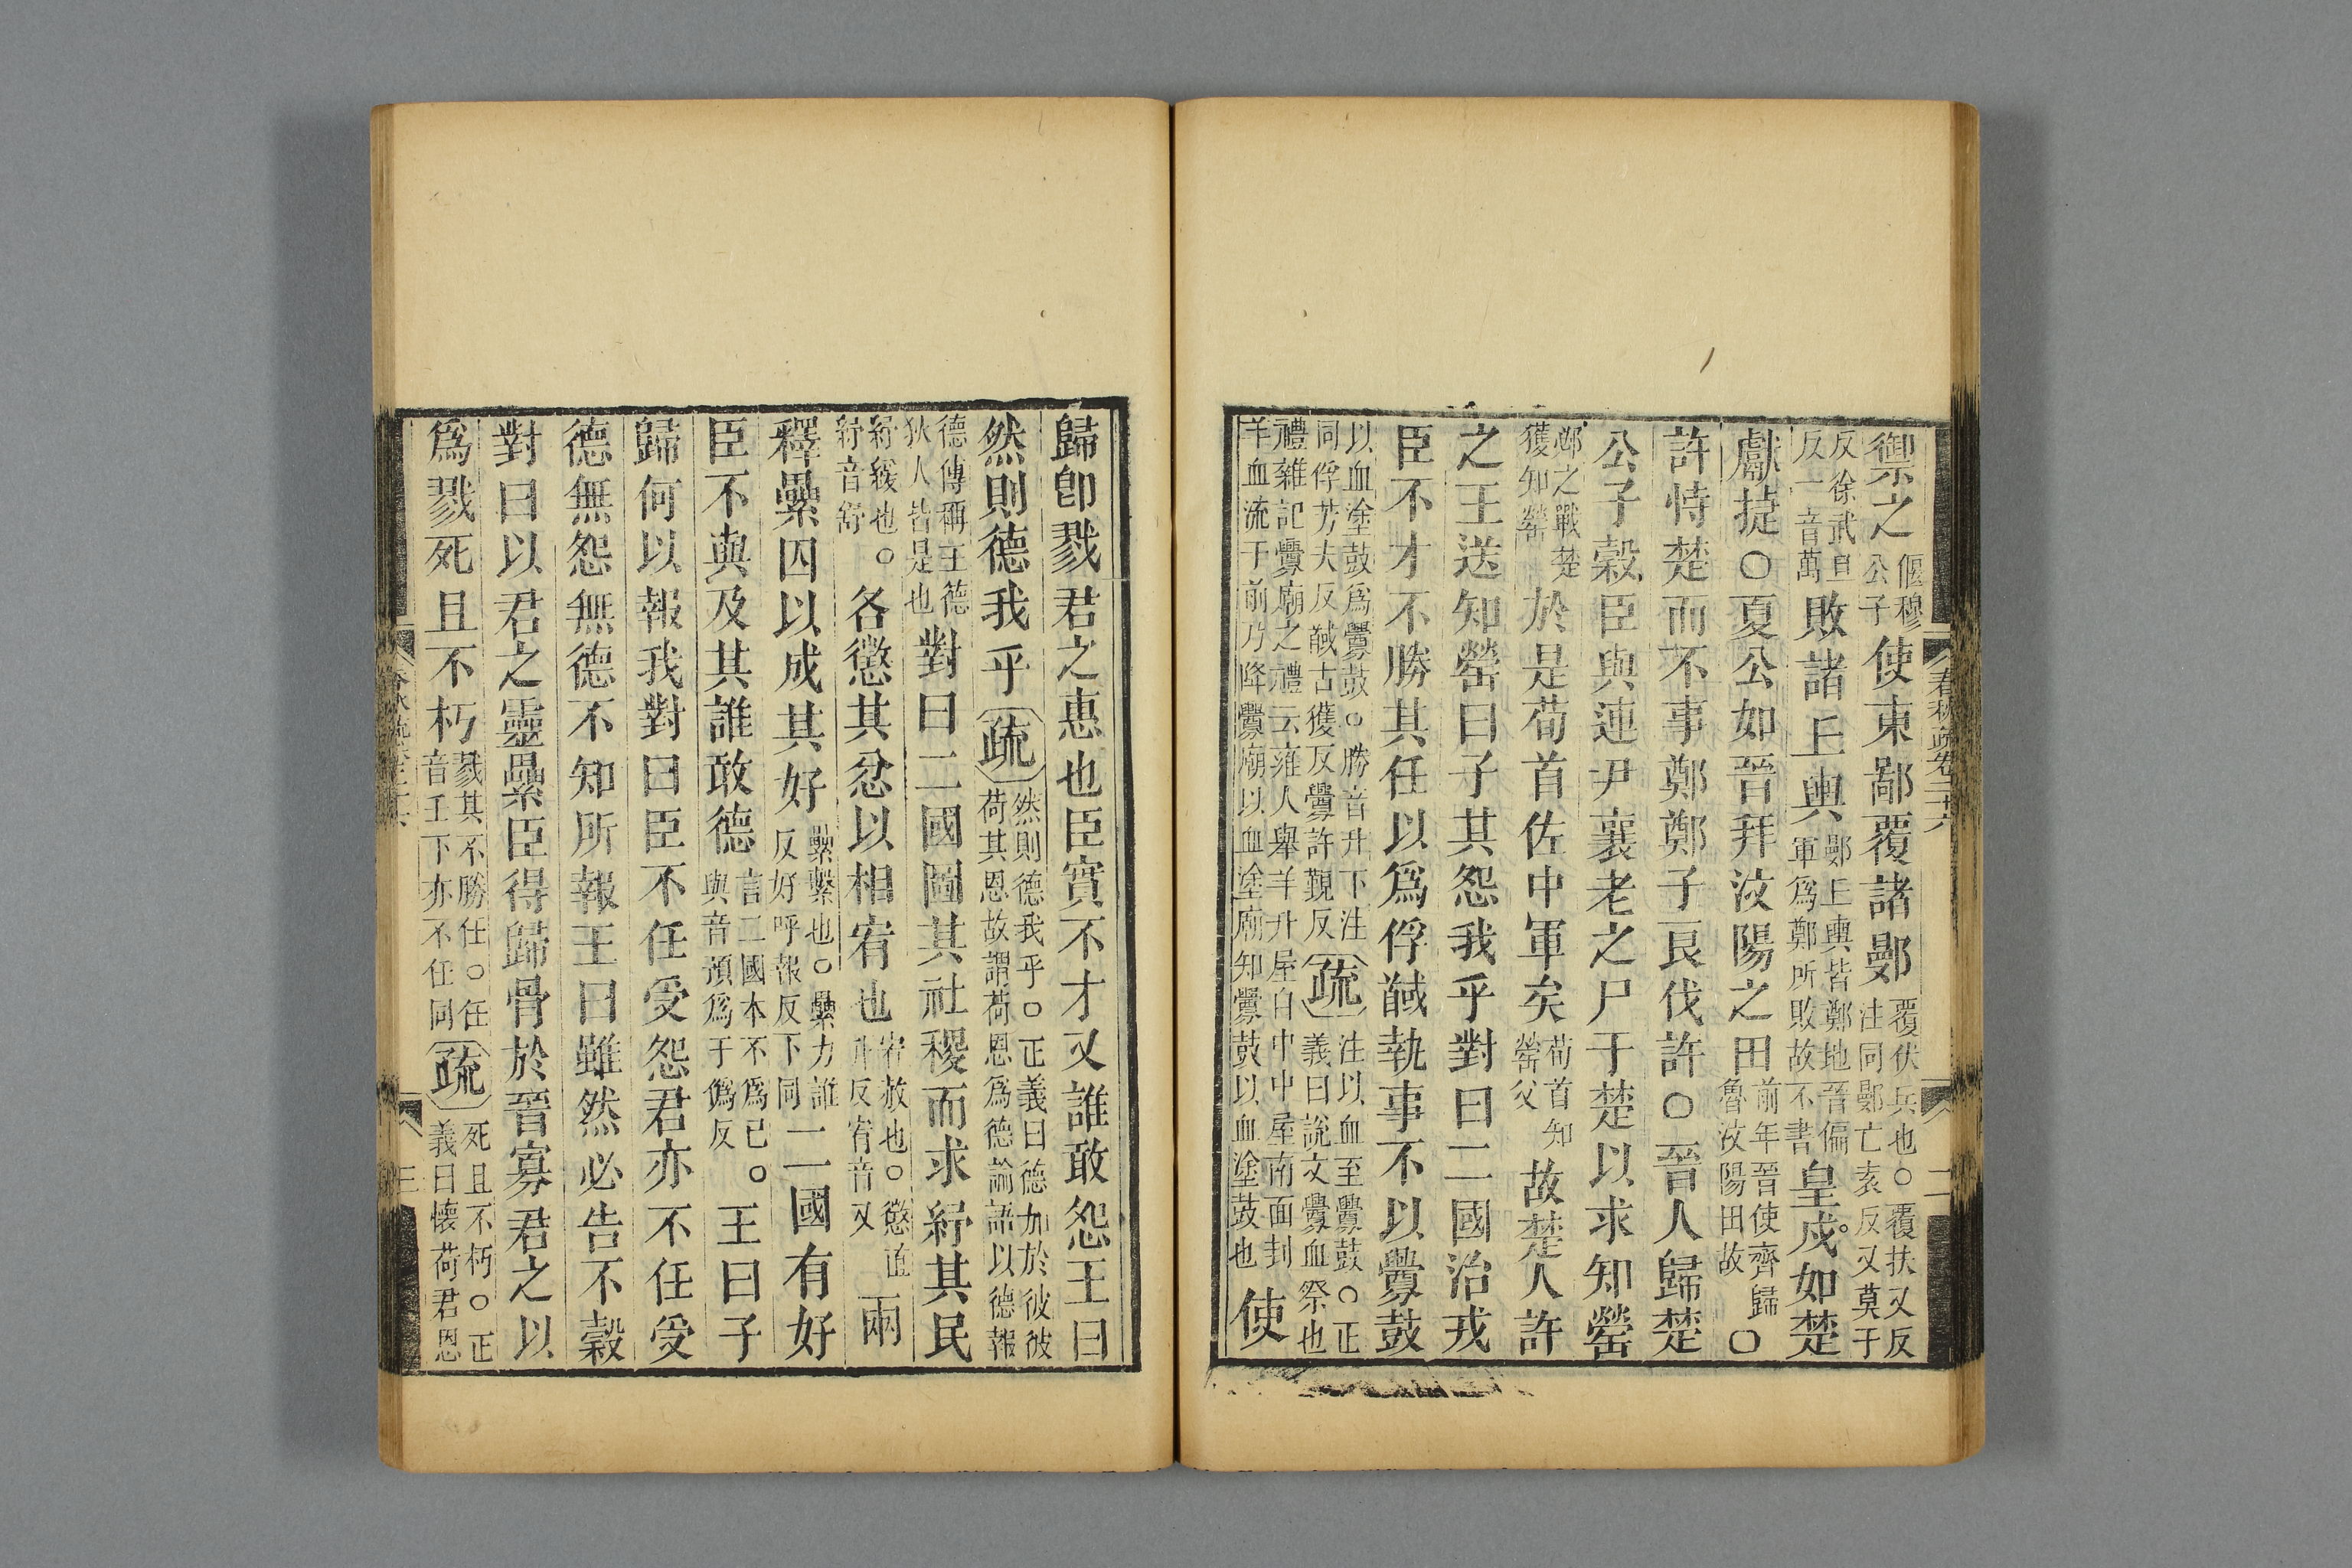 禦之偃穆公子使東鄙覆諸鄤覆伏兵也○覆扶又反注同鄤亡袁反又莫于
反徐武旦反一音萬敗諸丘輿鄤丘輿皆鄭地晉偏軍爲鄭所敗故不書皇戌如楚
獻捷○夏公如晉拜汶陽之田前年晉使齊歸魯汶陽田故○
許恃楚而不事鄭鄭子良伐許○晉人歸楚
公子穀臣與連尹襄老之尸于楚以求知罃
邲之戰楚獲知罃於是荀首佐中軍矣荀首知罃父故楚人許
之王送知罃曰子其怨我乎對曰二國治戎
臣不才不勝其任以爲俘馘執事不以釁鼓
以血塗鼓爲釁鼓○勝音升下注同俘芳夫反馘古獲反釁許覲反疏注以血至釁鼓○正義曰說文釁血祭也
禮雜記釁廟之禮云雍人舉羊升屋自中中屋南面刲羊血流于前乃降釁廟以血塗廟知釁鼓以血塗鼓也使
春秋疏卷二十六
二
歸卽戮君之惠也臣實不才又誰敢怨王曰
然則德我乎疏然則德我乎○正義曰德加於彼彼荷其恩故謂荷恩爲德論語以德報
德傳稱王德狄人皆是也對曰二國圖其社稷而求紓其民
紓緩也○紓音舒各懲其忿以相宥也宥赦也○懲直升反宥音又兩
釋纍囚以成其好纍繫也○纍力誰反好呼報反下同二國有好
臣不與及其誰敢德言二國本不爲已○與音預爲于僞反王曰子
歸何以報我對曰臣不任受怨君亦不任受
德無怨無德不知所報王曰雖然必告不穀
對曰以君之靈纍臣得歸骨於晉寡君之以
爲戮死且不朽戮其不勝任○任音壬下亦不任同疏死且不朽○正義曰懷荷君恩
三